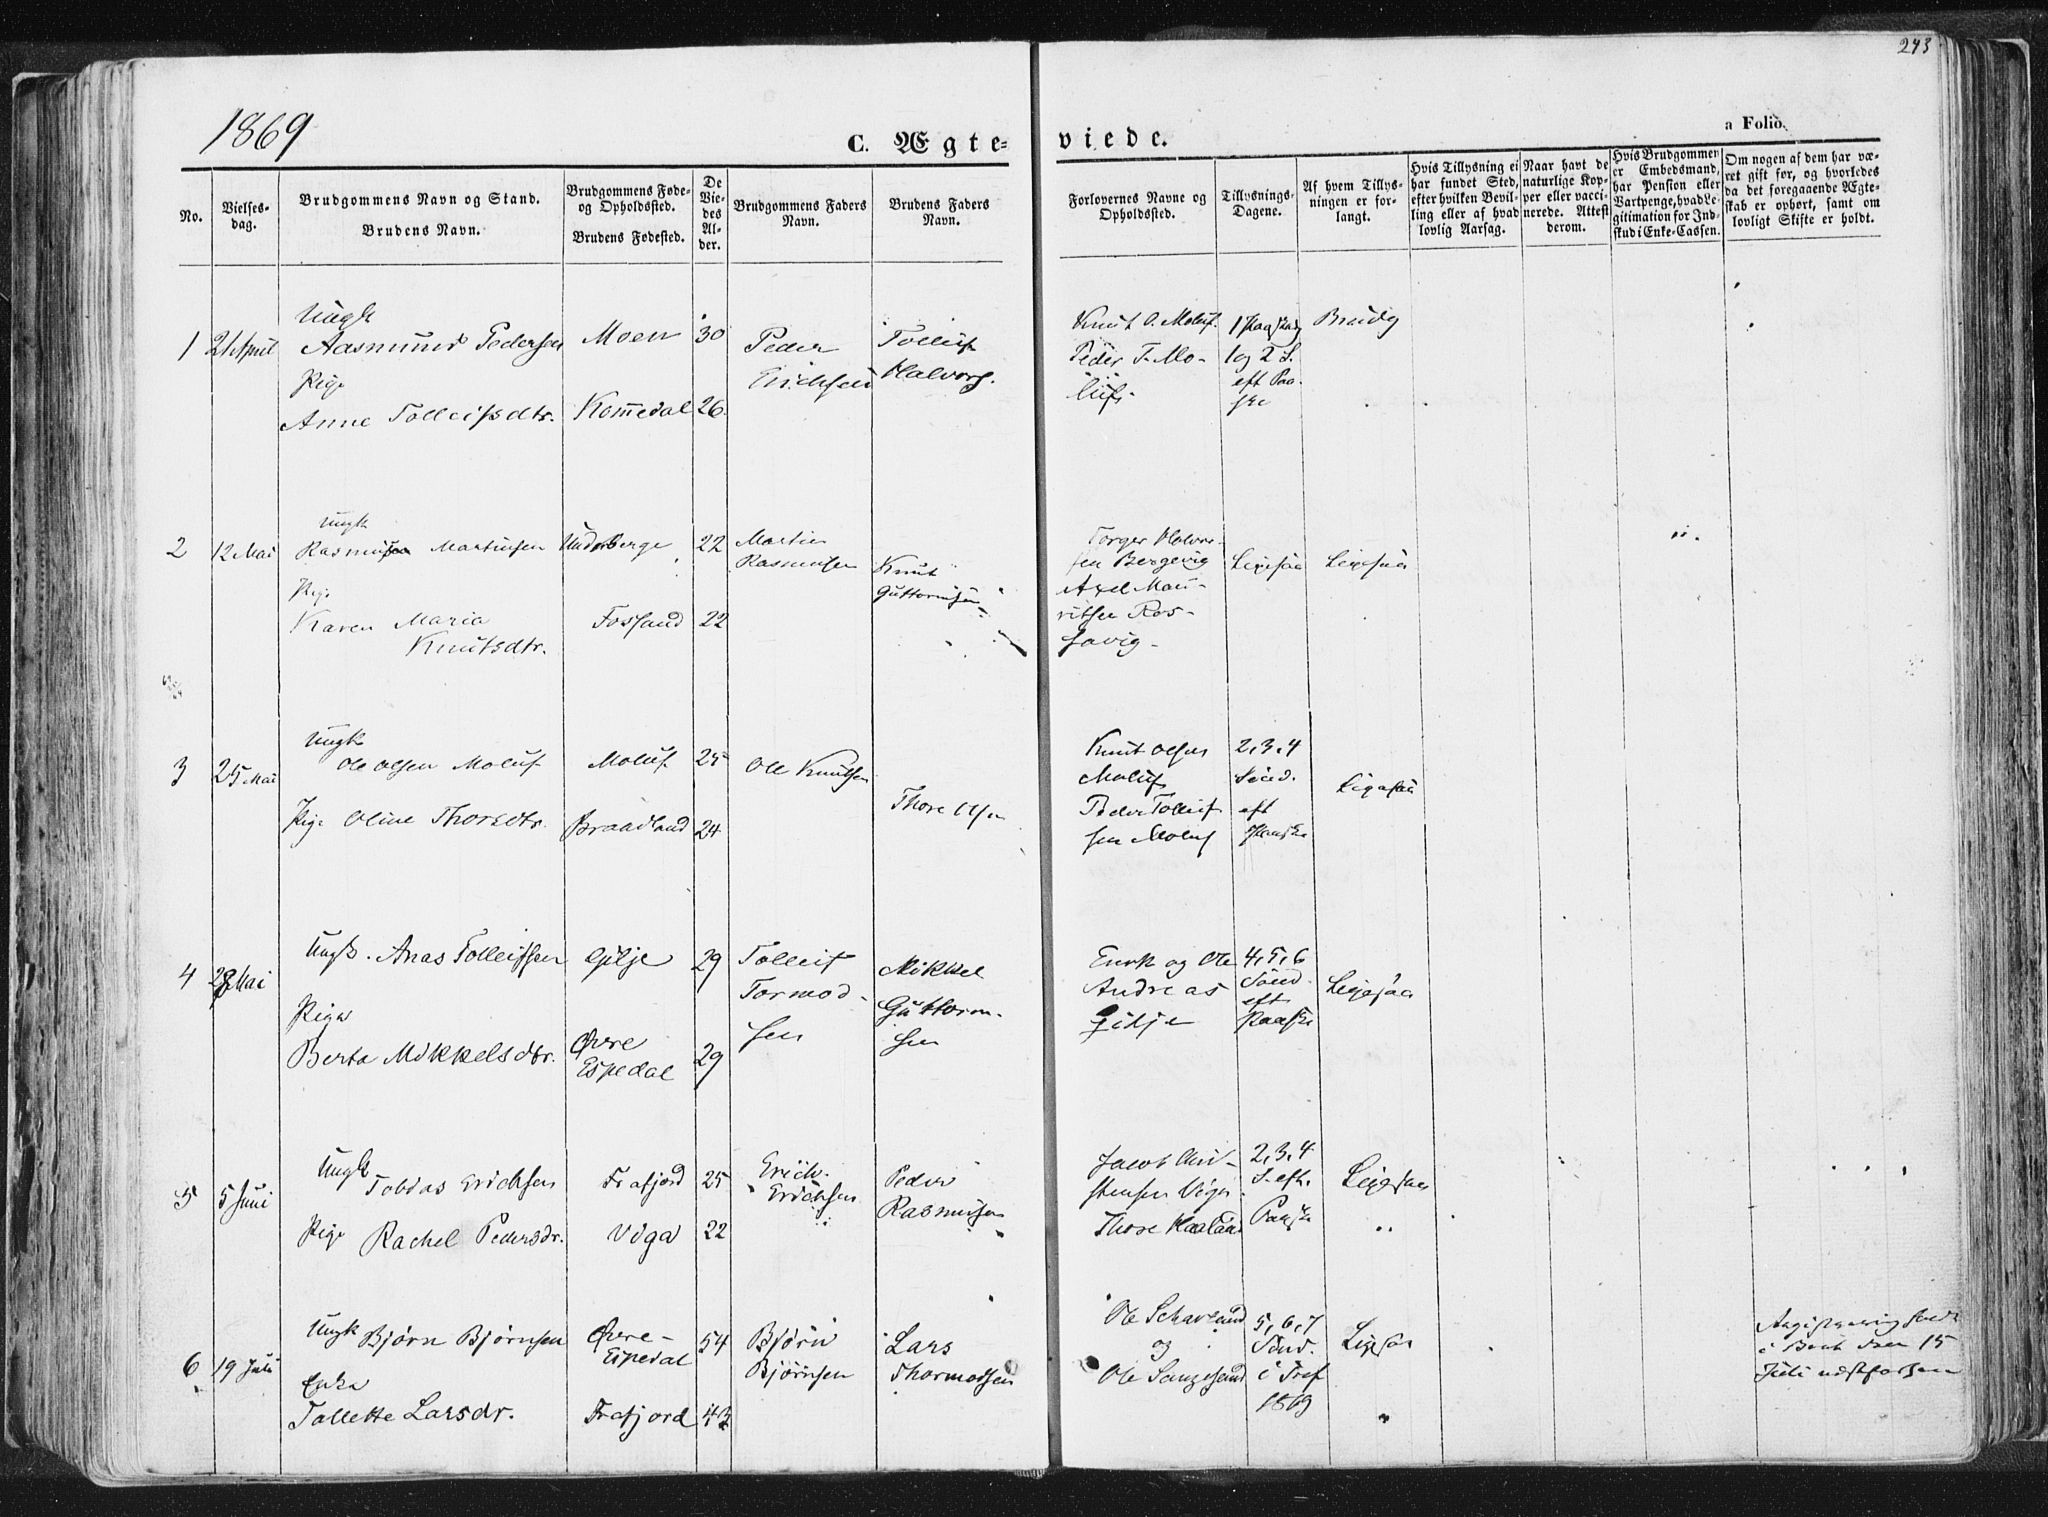 243
1869
C. Ægte-
viede.
a Folio.
No.
Vielses-
dag.
Brudgommens Navn og Stand.
Brudens Navn.
Brudgommens Føde-
og Opholdssted.
Brudens Fødested.
De
Vie-
des
Al-
der.
Brudgommens Faders
Navn.
Brudens Faders
Navn.
Forlovernes Navne og
Opholdssted.
Tillysnings-
Dagene.
Af hvem Tillys-
ningen er for-
langt.
Hvis Tillysning ei
har fundet Sted,
efter hvilken Bevil-
ling eller af hvad
lovlig Aarsag.
Naar havt de
naturlige Kop-
per eller vacci-
nerede. Attest
derom.
Hvis Brudgommen
er Embedsmand,
har Pension eller
Vartpenge, hvad Le-
gitimation for Ind-
skud i Enke-Cassen.
Om nogen af dem har væ-
ret gift før, og hvorledes
da det foregaaende Ægte-
skab er ophørt, samt om
lovligt Skifte er holdt.
1 21 April
Ungk
Aasmund Pedersen
Pige
Anne Tolleifsdtr.
Moen 30
Kommedal 26
Peder
Erichsen
Halvors.
Knut O. Moluf.
Peder T. Mo-
luf.
1 og 2 S.
eft Paa-
ske
2 12 Mai
Ungk
Rasmus Martinsen
Pige
Karen Maria
Knutsdtr.
Underberge 22
Fossand 22
Martin
Rasmusen
Knut
Guttormsen
Torger Halvor-
sen Bergevig
Axel Mau-
ritsen Ros-
savig
Ligesaa
Ligesaa
3 25 Mai
Ungk
Ole Olsen Moluf
Pige Oline Thorsdtr.
Moluf 25
Braadland 24
Ole Knutsen
Thore Olsen
Knut Olsen
Moluf
Peder Tolleif
sen Moluf
2, 3, 4
Sønd.
eft
Paaske
Ligesaa
4 28 Mai
Ungk. Anas Tolleifsen
Pige
Berta Mikkelsdtr.
Gilje 29
Øvre
Espedal 29
Tolleif
Tormod-
sen
Mikkel
Guttorm-
sen
Enok og Ole
Andreas
Gilje
4, 5, 6
Sønd.
eft
Paaske
Ligesaa
5 5 Juni
Ungk
Tobias Erichsen
Pige Rachel Pedersdr.
Frafjord 25
Viga 22
Erich
Erichsen
Peder
Rasmusen
Jacob Chri-
stensen Viga
Thore Haaland
2, 3, 4
S. eft.
Paaske
Ligesaa
6 19 Juli
Ungk Bjørn Bjørnsen
Enke
Tallette Larsdr.
Øvre-
Espedal 54
Frafjord 43
Bjørn
Bjørnsen
Lars
Thormodsen
Ole Schavland
og
5, 6, 7
Sønd.
i Tref
1869
Ligesaa